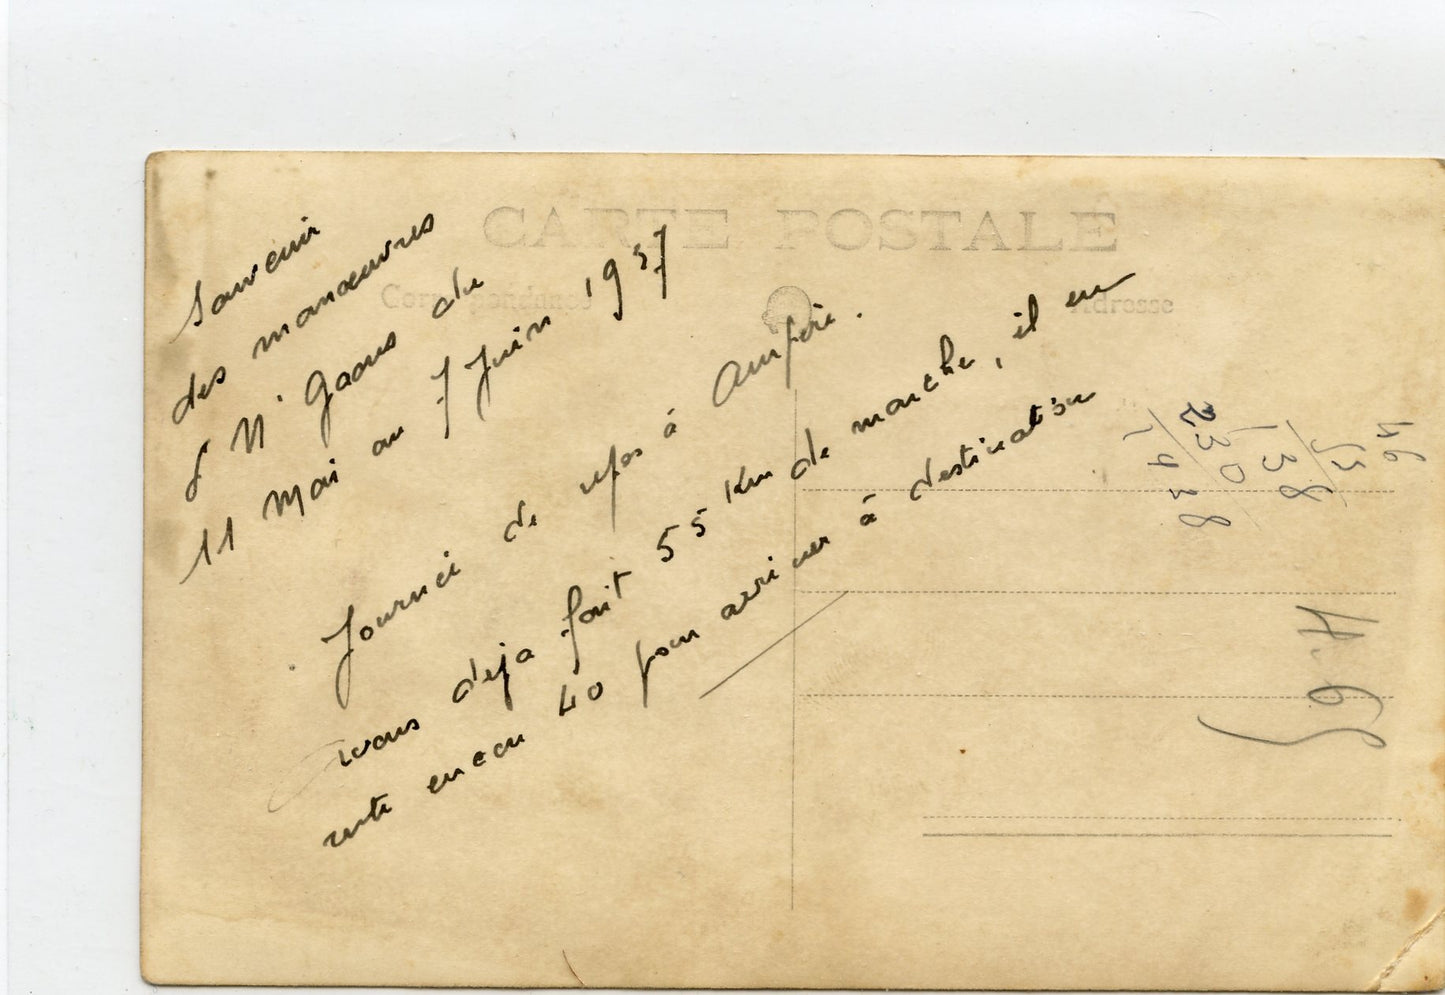 CARTE POSTALE
Correspondance
Adresse
Souvenir
des manœuvres
d N' Gaous du
11 Mai au 7 Juin 1937
Journée de repos à Ampère.
avons deja fait 55 Km de marche, il en
reste encore 40 pour arriver à destination
46
138
230
1938